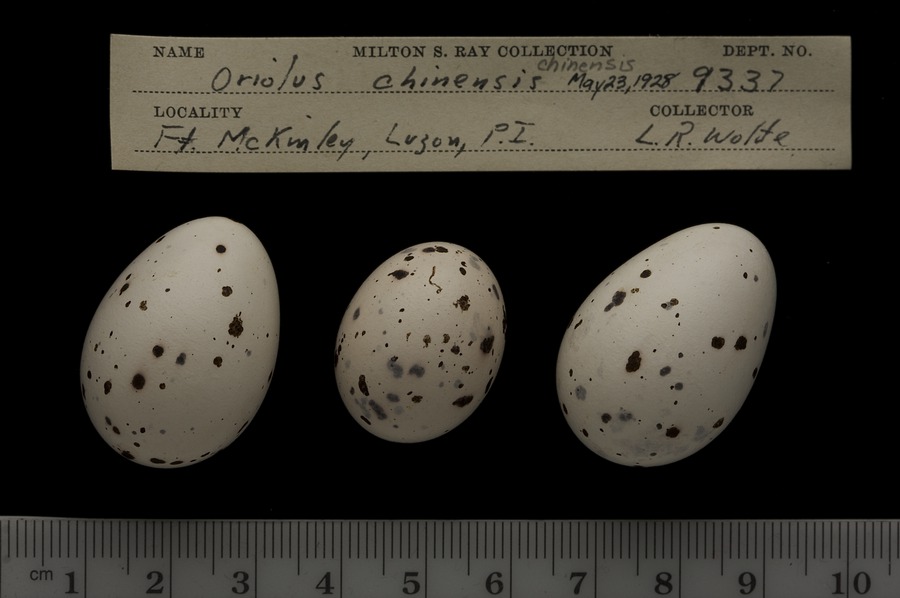 NAME MILTON S. RAY COLLECTION DEPT. NO.
chinensis
Oriolus chinensis May 23, 1928 9337
LOCALITY COLLECTOR
Ft. McKinley, Luzon, P.I. L.R. Wolfe
cm 1 2 3 4 5 6 7 8 9 10